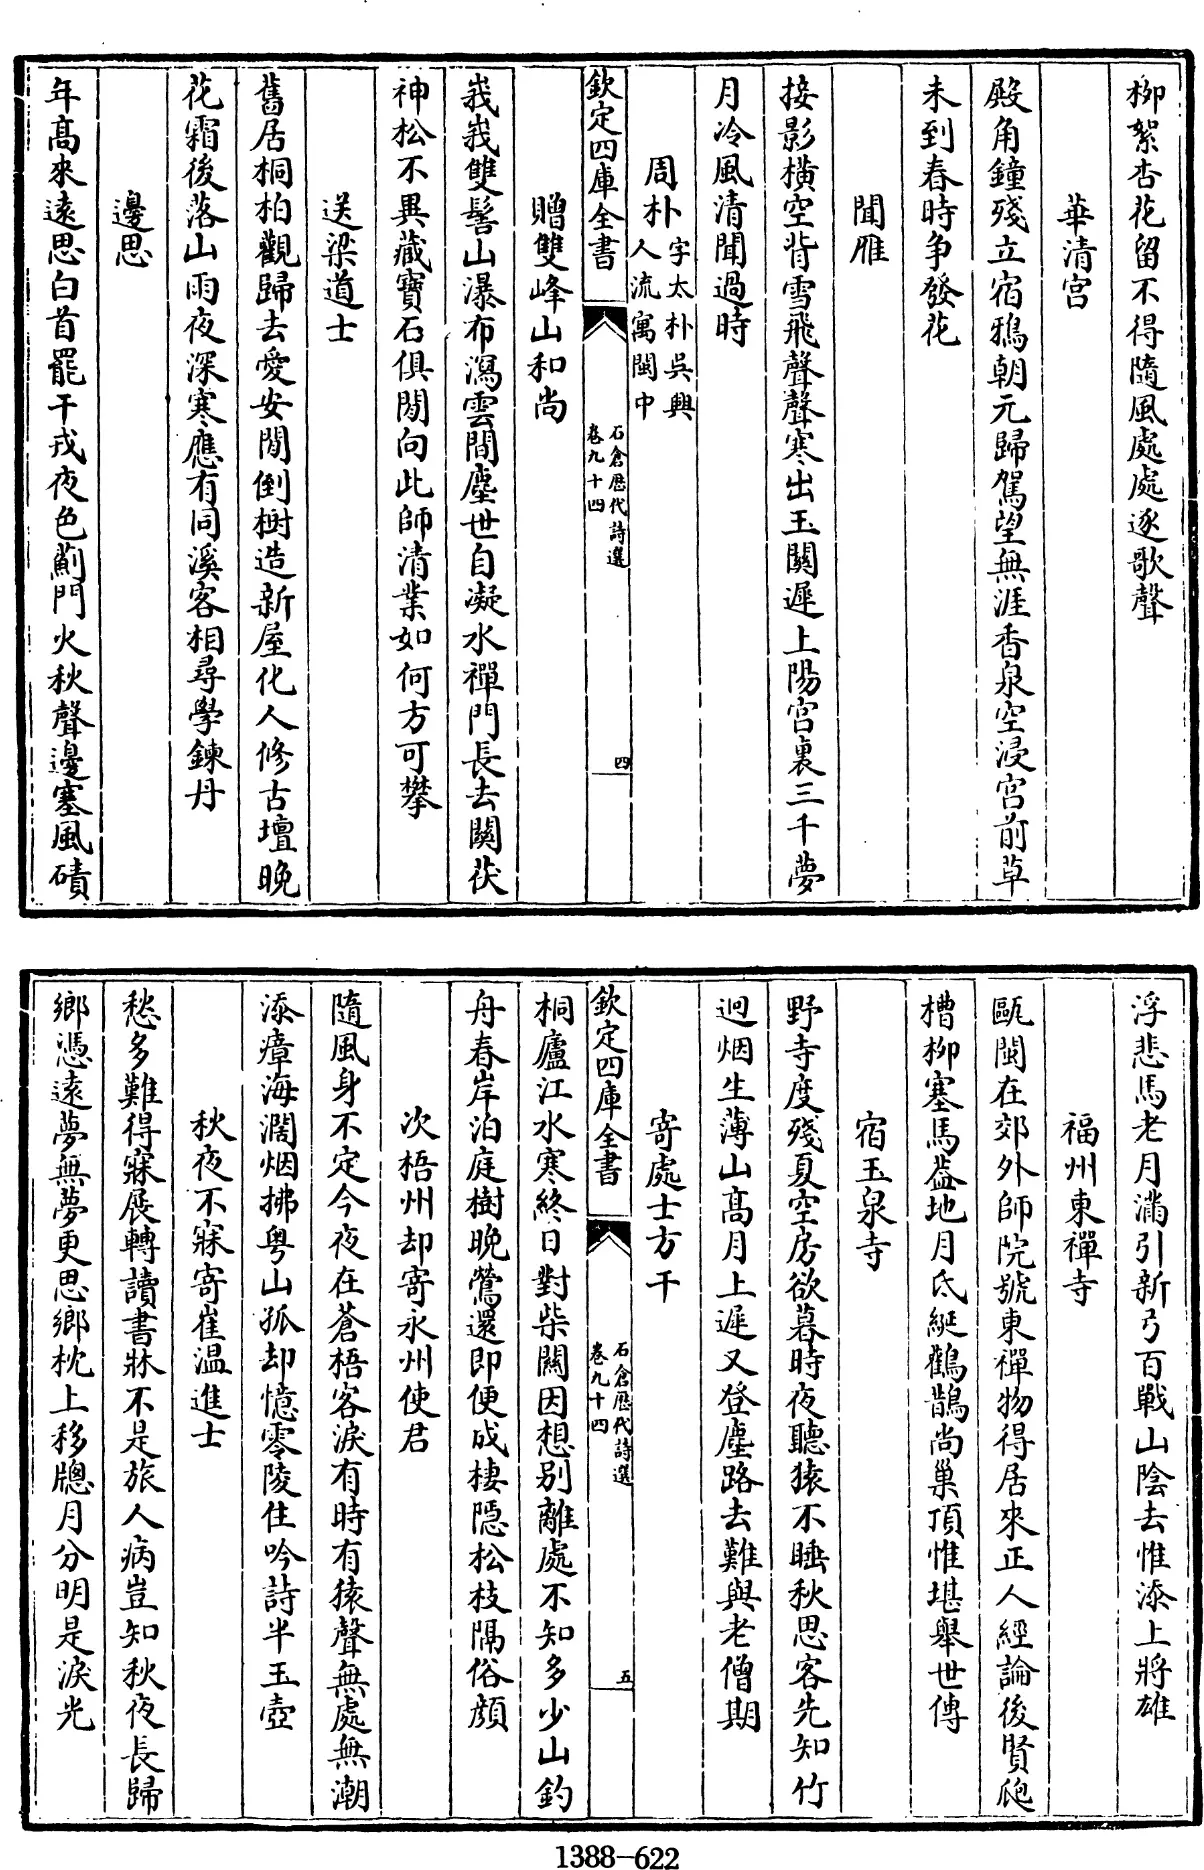 柳絮杏花留不得隨風處處逐歌聲
華清宫
殿角鐘殘立宿鴉朝元歸駕望無涯香泉空浸宫前草
未到春時争發花
聞雁
接影横空背雪飛聲聲寒出玉關遲上陽宫裏三千夢
月冷風清聞過時
周朴字太朴吳興
人流寓閩中
欽定四庫全書
石倉歷代詩選
卷九十四
四
贈雙峰山和尚
峩峩雙髻山瀑布瀉雲間塵世自凝水禪門長去關茯
神松不異藏寶石俱閒向此師清業如何方可攀
送梁道士
舊居桐柏觀歸去愛安閒倒樹造新屋化人修古壇晚
花霜後落山雨夜深寒應有同溪客相尋學鍊丹
邊思
年高來遠思白首罷干戎夜色薊門火秋聲邊塞風磧
浮悲馬老月滿引新弓百戰山陰去惟添上將雄
福州東禪寺
甌閩在郊外師院號東禪物得居來正人經論後賢爬
槽柳塞馬葢地月氐綖鸛鵲尚巢頂惟堪舉世傳
宿玉泉寺
野寺度殘夏空房欲暮時夜聽猿不睡秋思客先知竹
迥烟生薄山高月上遲又登塵路去難與老僧期
寄處士方干
桐廬江水寒終日對柴關因想别離處不知多少山釣
欽定四庫全書
石倉歷代詩選
卷九十四
五
舟春岸泊庭樹晩鶯還即便成棲隠松枝隔俗顔
次梧州却寄永州使君
隨風身不定今夜在蒼梧客淚有時有猿聲無處無潮
添瘴海濶烟拂粤山孤却憶零陵住吟詩半玉壺
秋夜不寐寄崔温進士
愁多難得寐展轉讀書牀不是旅人病豈知秋夜長歸
鄉憑遠夢無夢更思鄉枕上移牕月分明是淚光
1388-622